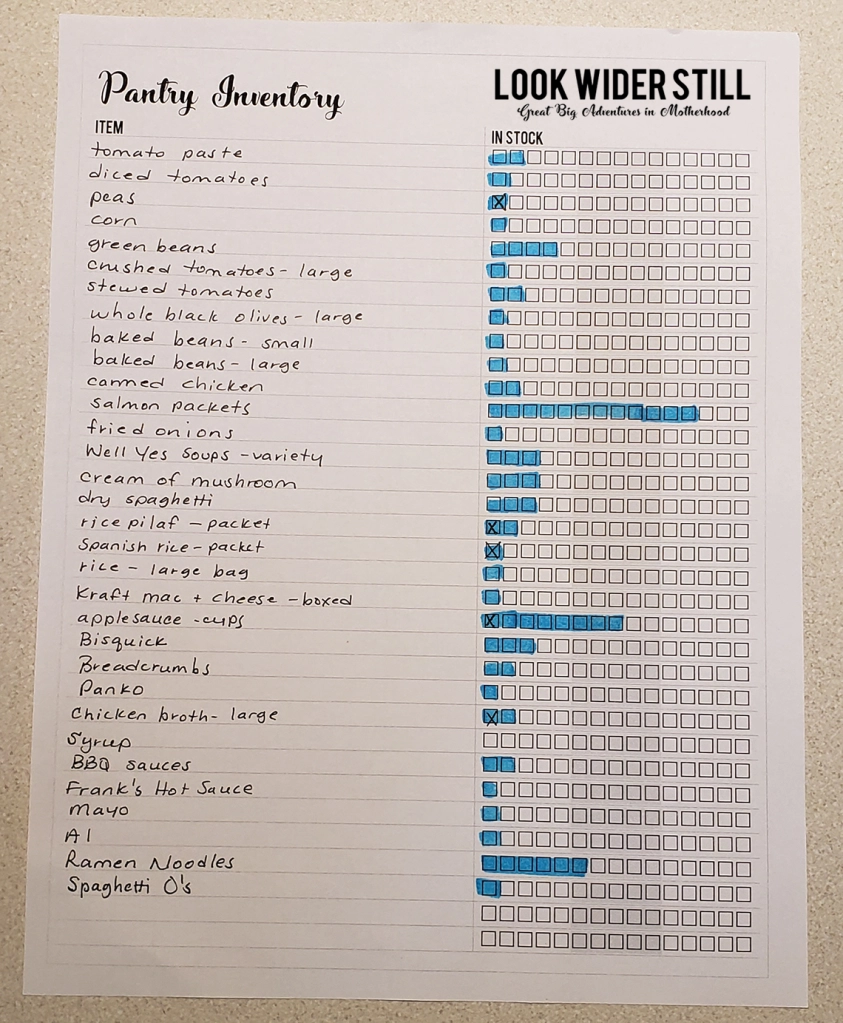 Pantry Inventory
LOOK WIDER STILL
Great Big Adventures in Motherhood
ITEM
IN STOCK
tomato paste
diced tomatoes
peas
corn
green beans
crushed tomatoes - large
stewed tomatoes
whole black olives - large
baked beans - small
baked beans - large
canned chicken
salmon packets
fried onions
Well Yes Soups - variety
cream of mushroom
dry spaghetti
rice pilaf - packet
Spanish rice - packet
rice - large bag
Kraft mac + cheese - boxed
applesauce - cups
Bisquick
Breadcrumbs
Panko
Chicken broth - large
Syrup
BBQ sauces
Frank's Hot Sauce
Mayo
A1
Ramen Noodles
Spaghetti O's